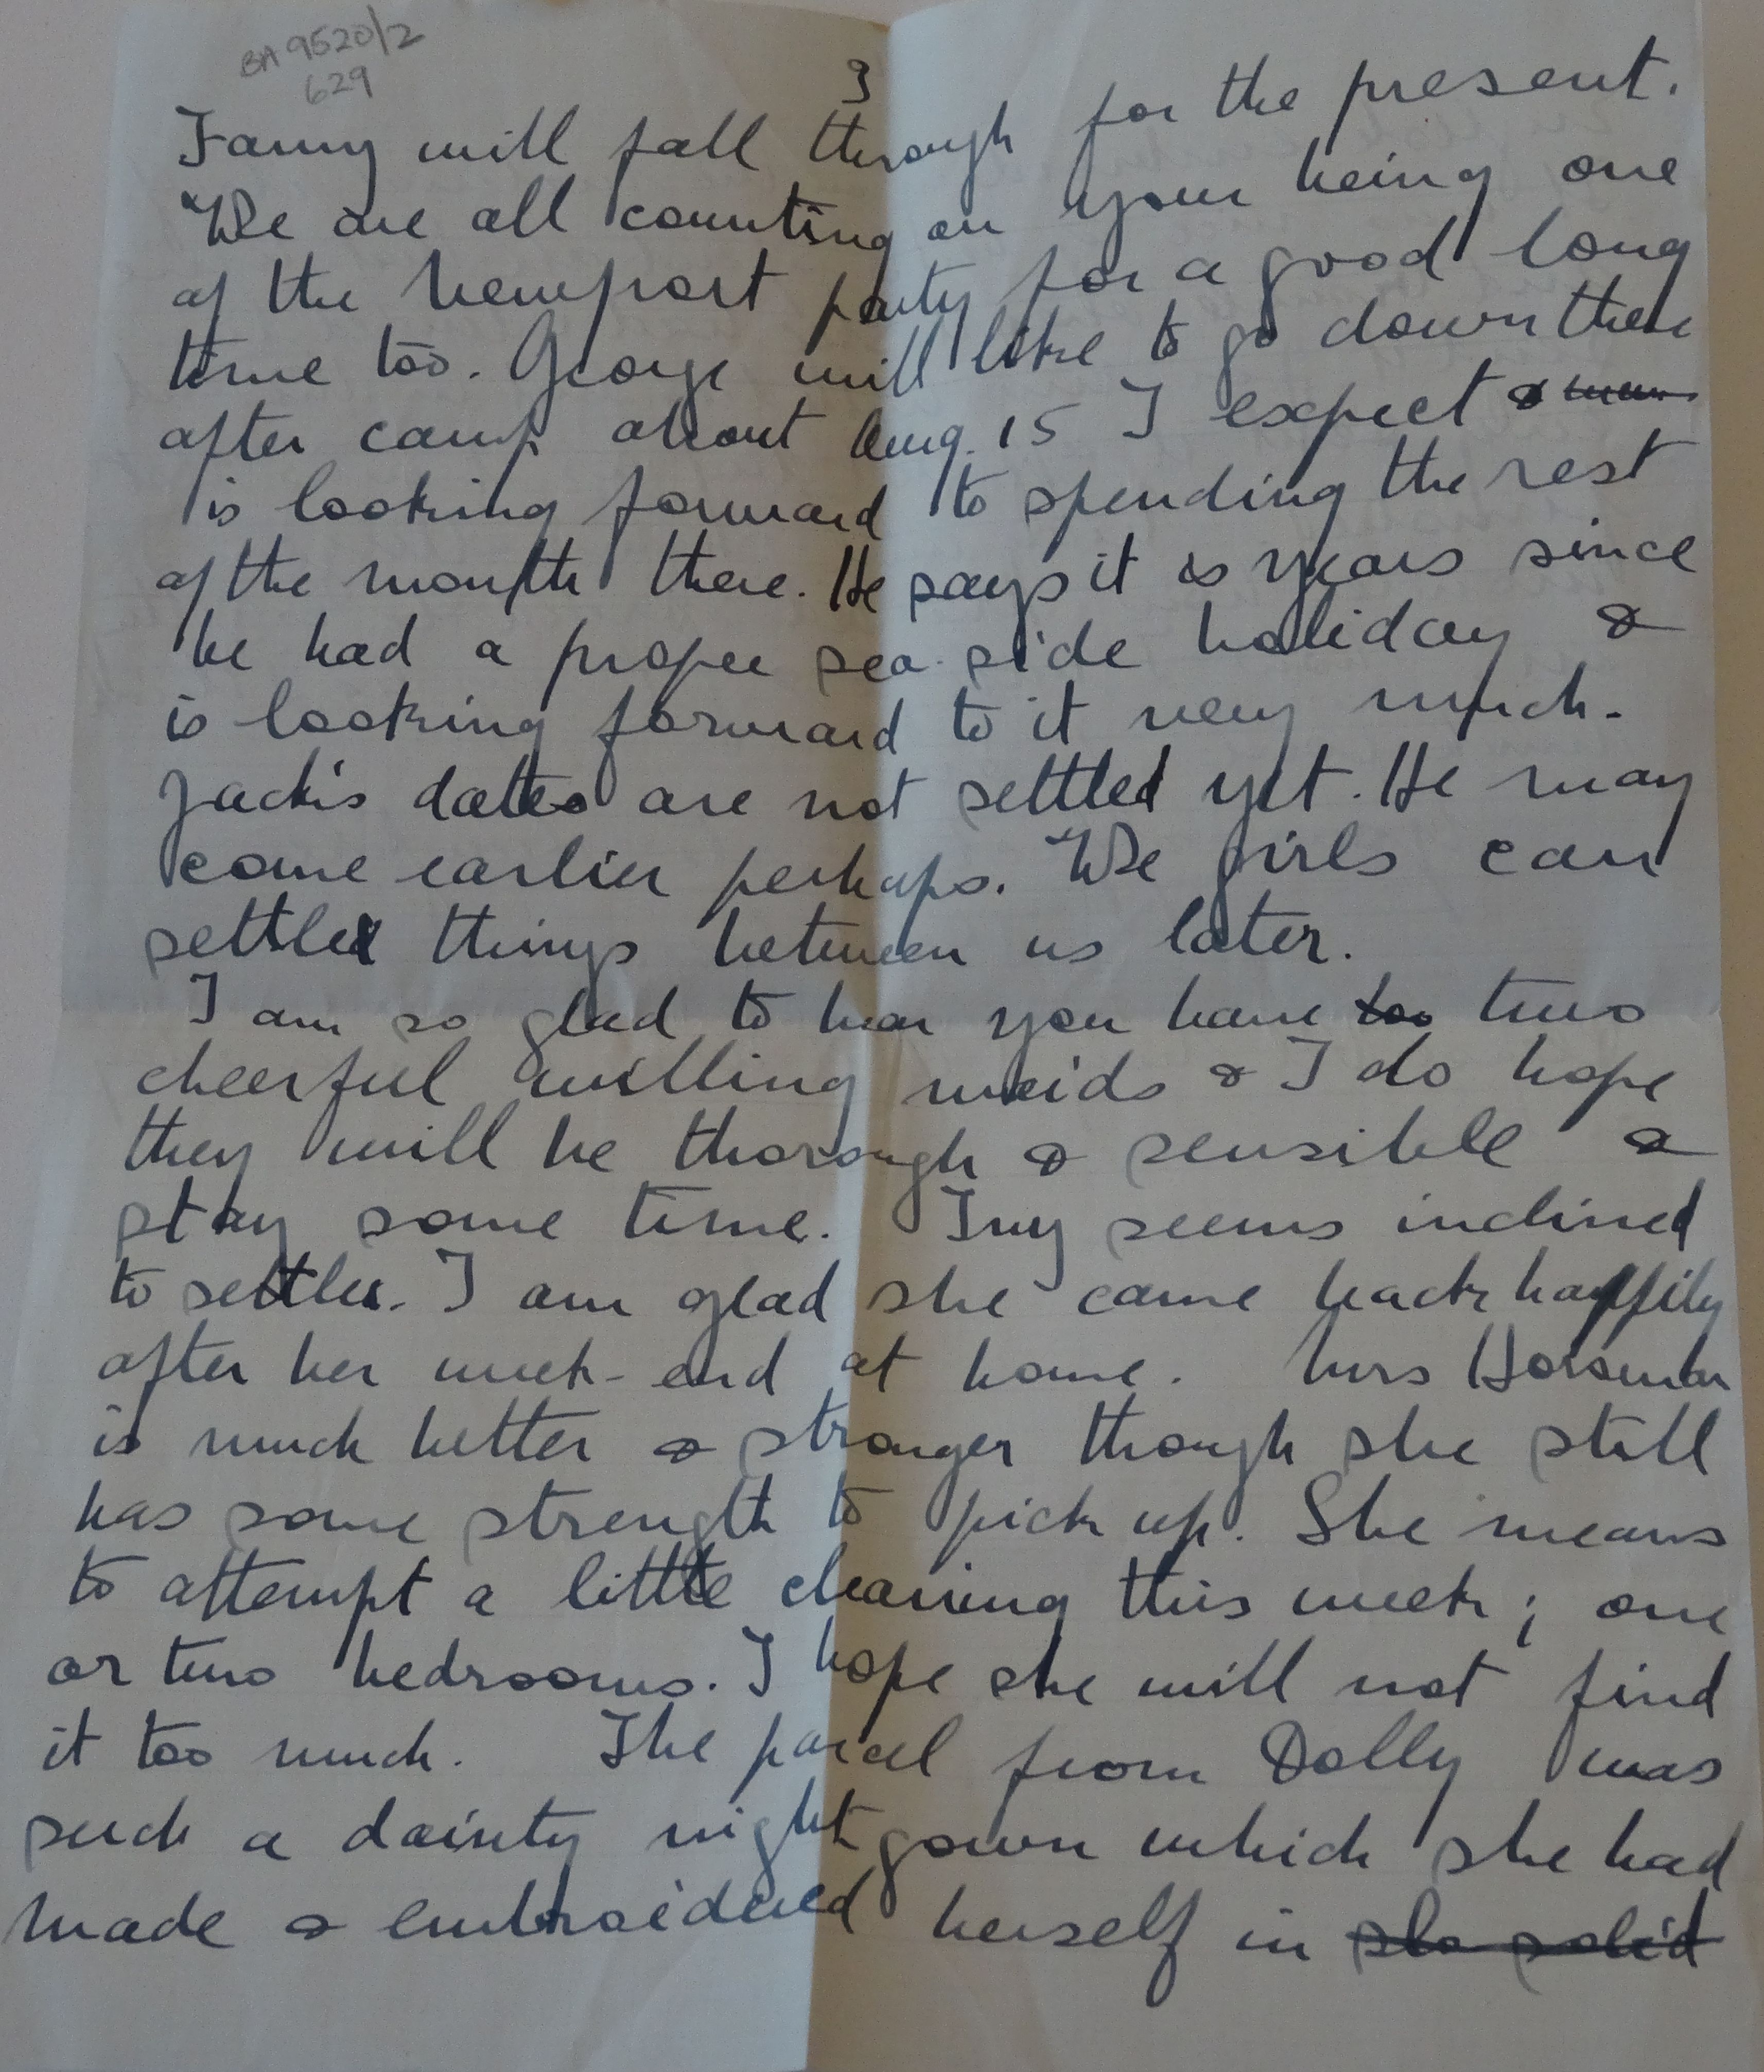 BA 9520/2
629
3
Fanny will fall through for the present.
We are all counting on your being one
of the Newport party for a good long
time too. George will like to go down there
after camp about Aug. 15 I expect &
is looking forward to spending the rest
of the month there. He says it is years since
he had a proper sea-side holiday &
is looking forward to it very much.
Jack's dates are not settled yet. He may
come earlier perhaps. We girls can
settle things between us later.
I am so glad to hear you have too two
cheerful willing maids & I do hope
they will be thorough & sensible &
stay some time. Ivy seems inclined
to settle. I am glad she came back happily
after her week-end at home. Mrs Horseman
is much better & stronger though she still
has some strength to pick up. She means
to attempt a little cleaning this week; one
or two bedrooms. I hope she will not find
it too much. The parcel from Dolly was
such a dainty night gown which she had
made & embroidered herself in slo solid